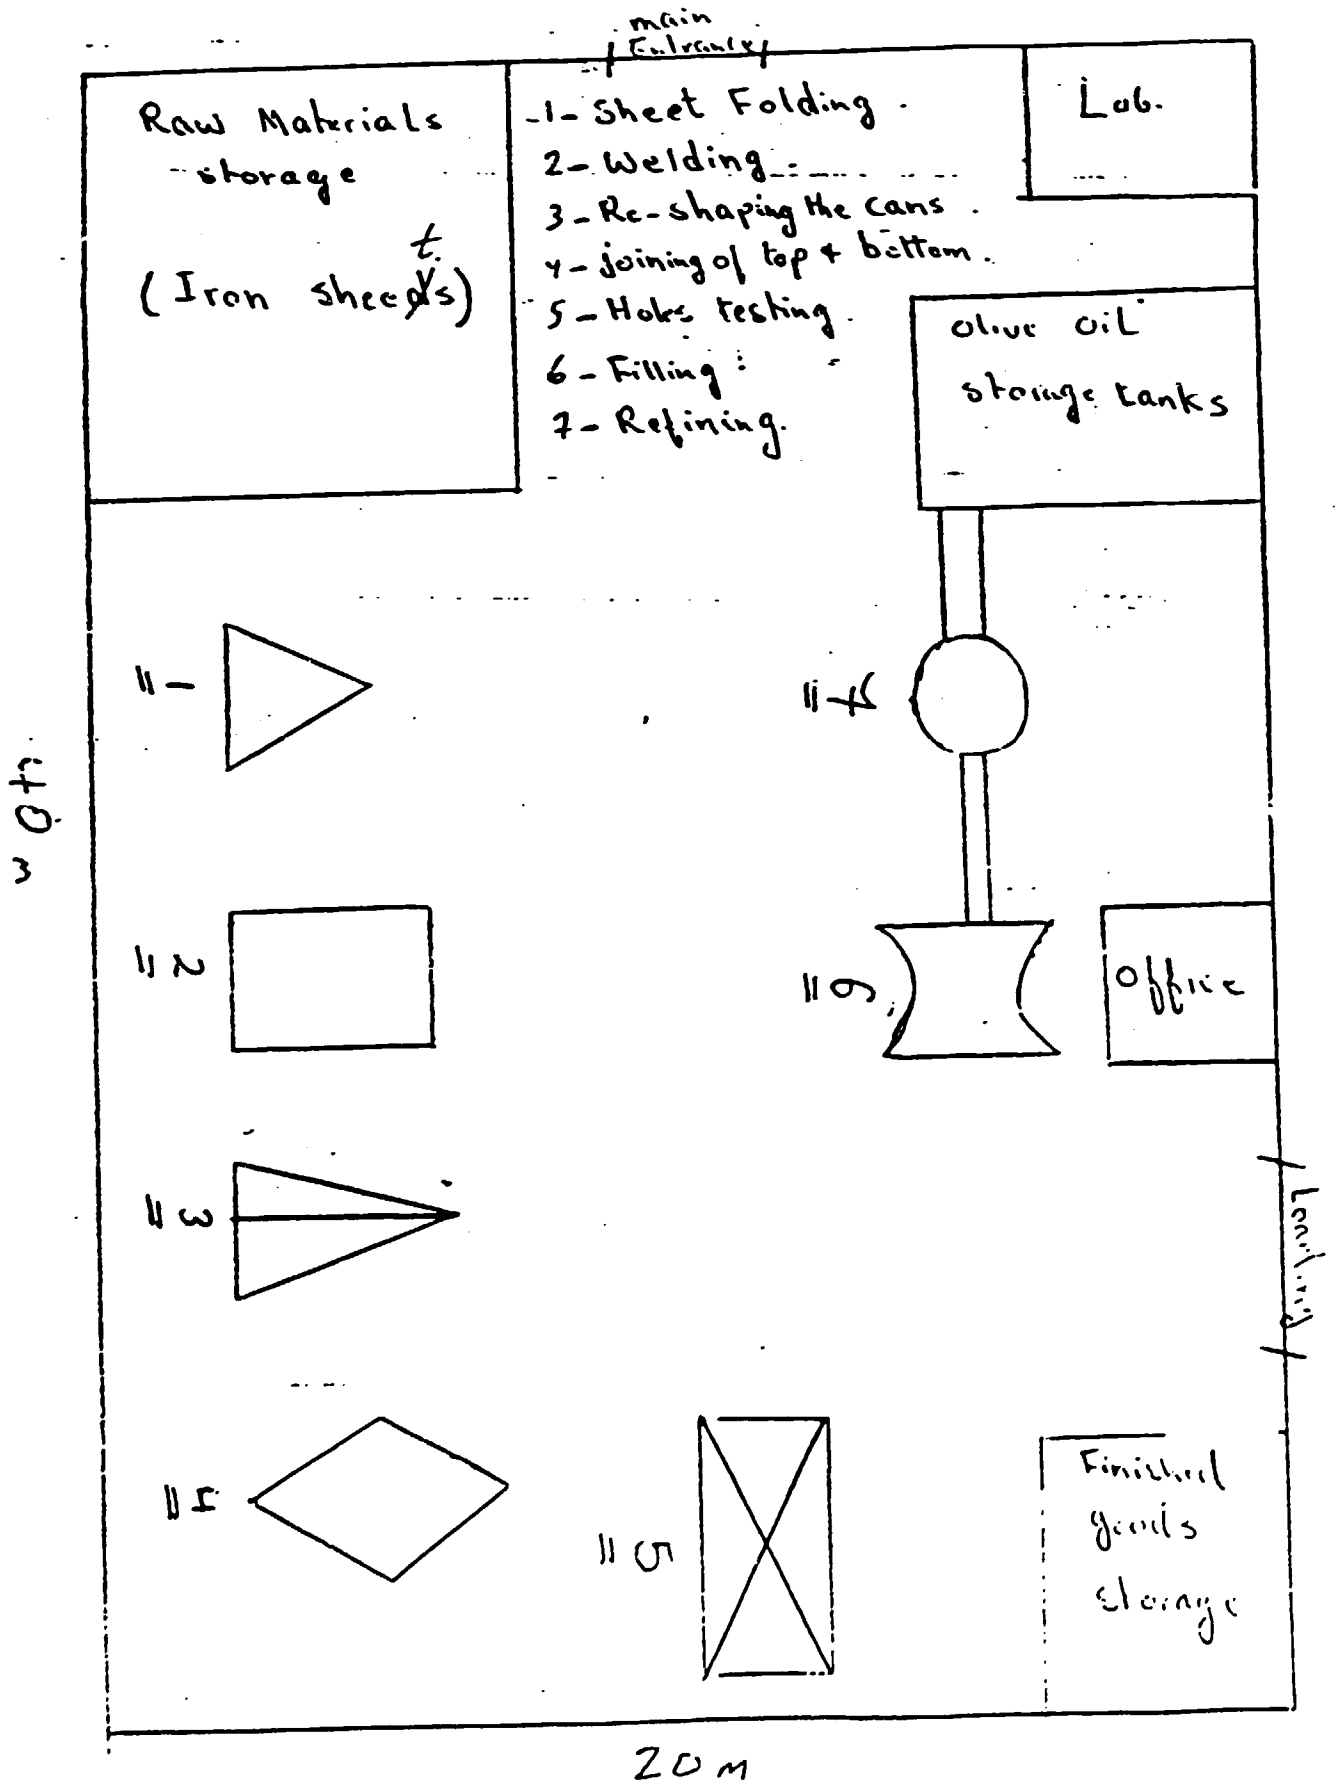 main
Entrance
Raw Materials
storage
(Iron sheets)
-1- Sheet Folding.
2- Welding.
3- Re-shaping the cans.
4- joining of top & bottom.
5- Holes testing.
6- Filling
7- Refining.
Lab.
olive oil
storage tanks
= 1
= 7
40 m
= 2
= 6
office
= 3
Loading
= 4
= 5
Finished
goods
storage
20 m